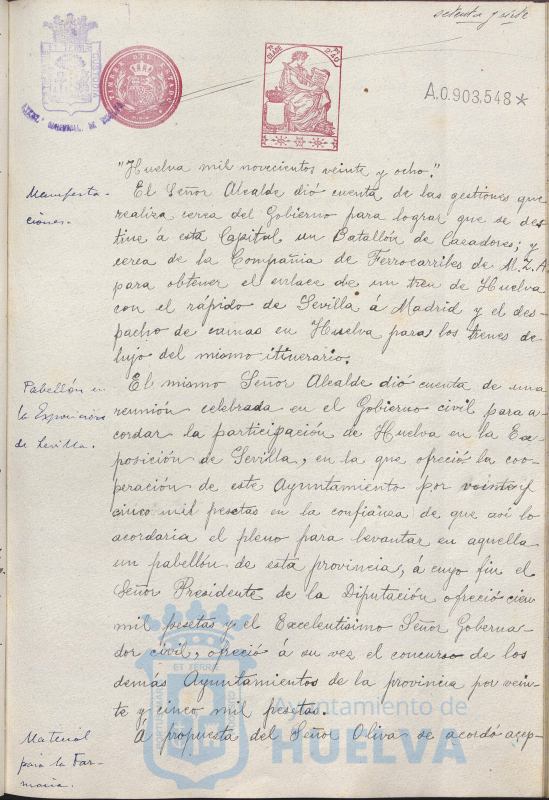 setenta y siete
TIMBRE DEL ESTADO
CLASE 7ª
A.0.903,548*
"Huelva mil novecientos veinte y ocho."
Manifesta-
ciones.
El Señor Alcalde dió cuenta de las gestiones que
realiza cerca del Gobierno para lograr que se des-
tine á esta Capital un Batallón de Cazadores; y
cerca de la Compañia de Ferrocarriles de M.Z.A
para obtener el enlace de un tren de Huelva
con el rápido de Sevilla á Madrid y el des-
pacho de camas en Huelva para los trenes de
lujo del mismo itinerario.
Pabellón en
la Exposición
de Sevilla.
El mismo Señor Alcalde dió cuenta de una
reunión celebrada en el Gobierno civil para a-
cordar la participación de Huelva en la Ex-
posición de Sevilla, en la que ofreció la coo-
peración de este Ayuntamiento por veinte y
cinco mil pesetas en la confianza de que así lo
acordaria el pleno para levantar en aquella
un pabellón de esta provincia, á cuyo fin el
Señor Presidente de la Diputación ofreció cien
mil pesetas y el Excelentisimo Señor Goberna-
dor civil, ofreció á su vez el concurso de los
demás Ayuntamientos de la provincia por vein-
te y cinco mil pesetas.
Material
para la Far-
macia.
Á propuesta del Señor Oliva se acordó acep-
Ayuntamiento de
HUELVA